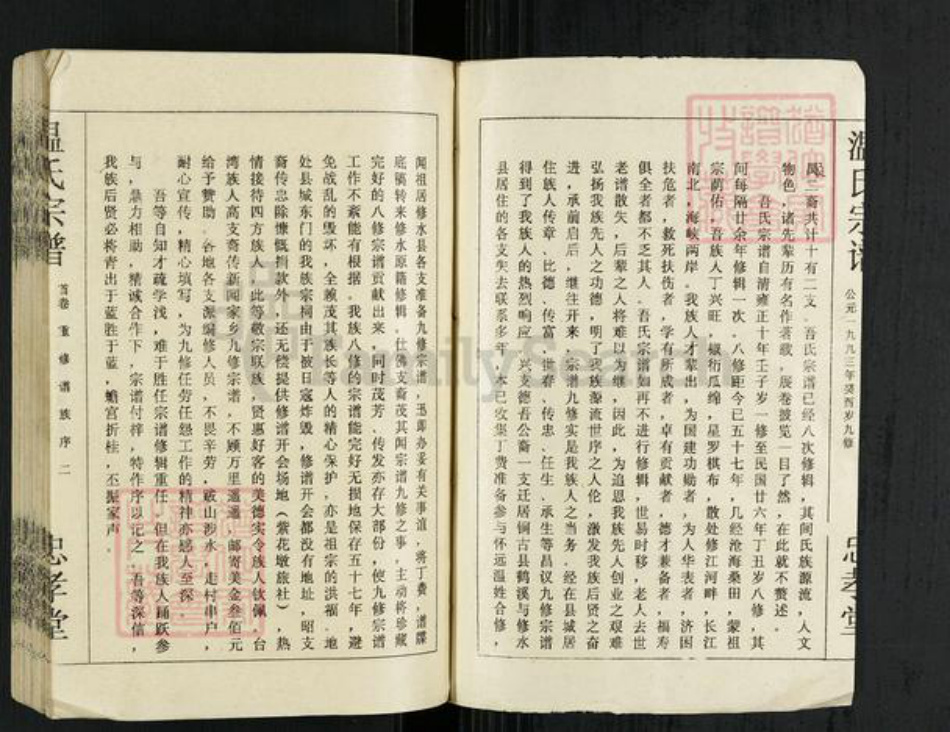 温氏宗谱
公元一九九三年癸酉岁九修
忠孝堂
凤二裔共计十有二支．吾氏宗谱已经八次修辑，其间氏族源流，人文
物色，诸先辈历有名作著载，展卷披览一目了然，在此就不赘述．
吾氏宗谱自清雍正十年壬子岁一修至民国廿六年丁丑岁八修，其
间每隔廿余年修辑一次，八修距今已五十七年，几经沧海桑田，蒙祖
宗荫佑，吾族人丁兴旺，椒衍瓜绵，星罗棋布，散处修江河畔，长江
南北，海峡两岸．我族人才辈出，为国建功勋者，为人华表者，济困
扶危者，救死扶伤者，学有所成者，卓有贡献者，德才兼备者，福寿
俱全者都不乏其人．吾氏宗谱如再不进行修辑，世易时移，老人去世
老谱散失，后辈之人将难以为继，因此，为追思我族先人创业之艰难
弘扬我族先人之功德，明了我族源流世序之人伦，激发我族后贤之奋
进，承前启后，继往开来，宗谱九修实是我族人之当务．经在县城居
住族人传章、比德、传富、世春、传忠、任生、承生等昌议九修宗谱
得到了我族人的热烈响应，兴支德吾公裔一支迁居铜古县鹤溪与修水
县居住的各支失去联系多年，本已收集丁费准备参与怀远温姓合修，
闻祖居修水县各支准备九修宗谱，迅即办妥有关事谊，将丁费，谱牒
底稿转来修水原籍修辑．仕佛支裔茂其闻宗谱九修之事，主动将珍藏
完好的八修宗谱贡献出来，同时茂芳、传发亦存大部份，使九修宗谱
工作不紊能有根据．我族八修的宗谱能完好无损地保存五十七年，避
免战乱的毁坏，全赖茂其族长等人的精心保护，亦是祖宗的洪福．地
处县城东门的我族宗祠由于被日寇炸毁，修谱开会都没有地址，昭支
裔传忠除慷慨捐款外，还无偿提供修谱开会场地（紫花墩旅社），热
情接待四方族人，此等敬宗联族，贤惠好客的美德实令族人钦佩．台
湾族人高支裔传新闻家乡九修宗谱，不顾万里遥遥，邮寄美金叁佰元
给予赞助．各地各支派编修人员，不畏辛劳，跋山涉水，走村串户，
耐心宣传，精心填写，为九修任劳任怨工作的精神亦感人至深．
吾等自知才疏学浅，难于胜任宗谱修辑重任．但在我族人踊跃参
与，鼎力相助，精诚合作下，宗谱付梓，特作序以记之．吾等深信，
我族后贤必将青出于蓝胜于蓝，蟾宫折桂，丕振家声．
温氏宗谱
首卷 重修谱族序 二
忠孝堂
FamilySearch